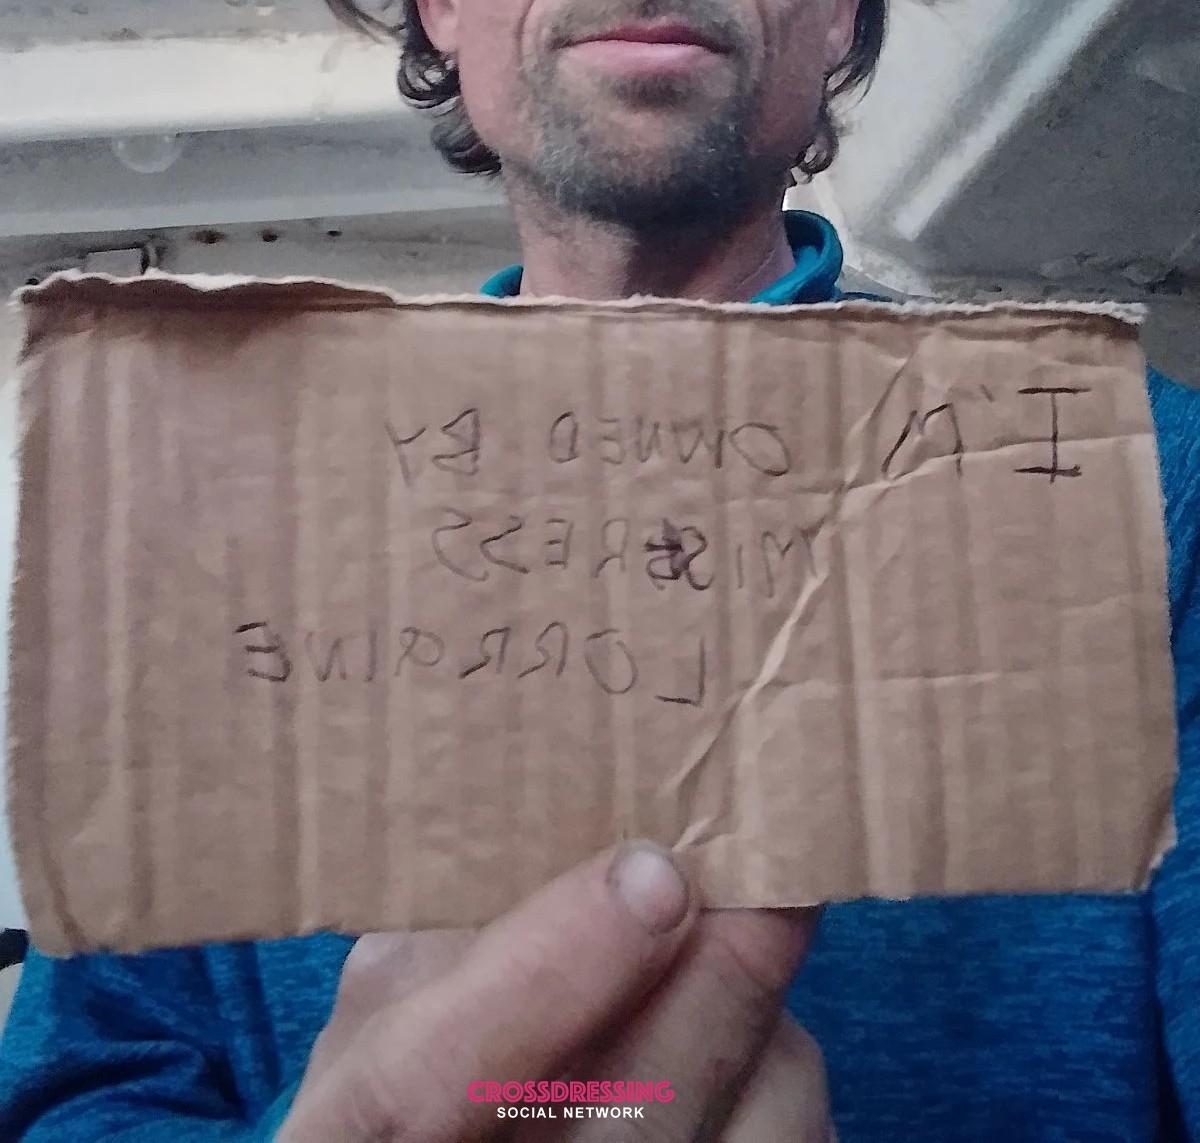 I'M OWNED BY
MISTRESS
LORRAINE
CROSSDRESSING
SOCIAL NETWORK